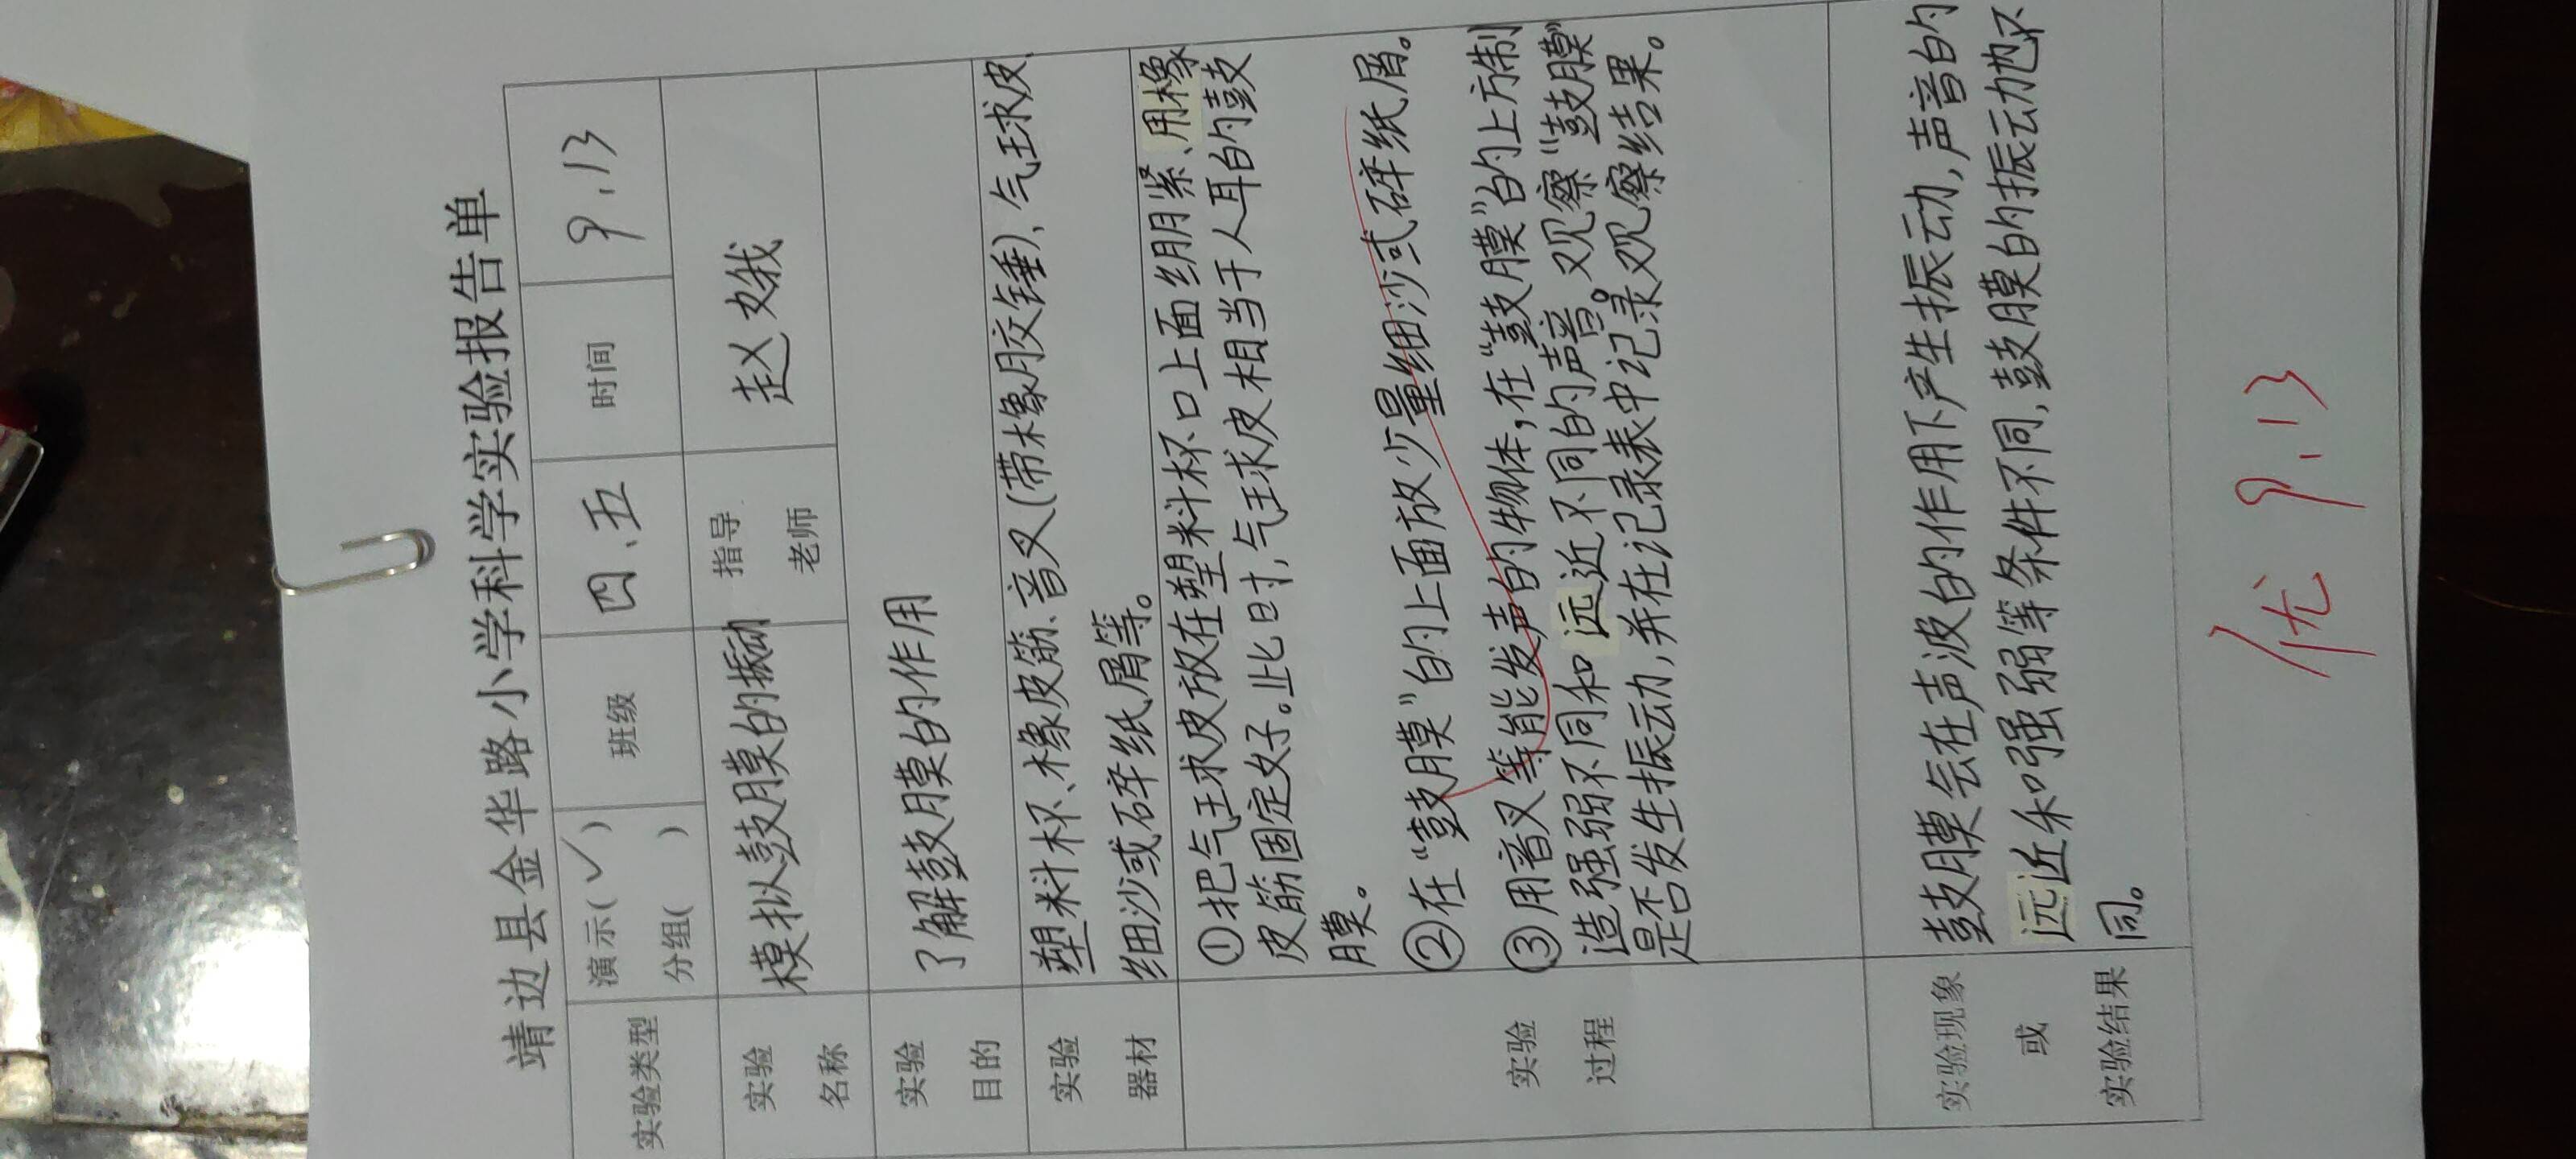 靖边县金华路小学科学实验报告单
实验类型 演示(✓) 分组( ) 班级 四、五 时间 9.13
实验名称 模拟鼓膜的振动 指导老师 赵娥
实验目的 了解鼓膜的作用
实验器材 塑料杯、橡皮筋、音叉(带橡胶锤)、气球皮、
细沙或碎纸屑等。
实验过程 ①把气球皮放在塑料杯口上面绷紧、用橡
皮筋固定好。此时,气球皮相当于人耳的鼓
膜。
②在“鼓膜”的上面放少量细沙或碎纸屑。
③用音叉等能发声的物体,在“鼓膜”的上方制
造强弱不同和远近不同的声音。观察“鼓膜”
是否发生振动,并在记录表中记录观察结果。
实验现象或实验结果 鼓膜会在声波的作用下产生振动,声音的
远近和强弱等条件不同,鼓膜的振动也不
同。
优 9.13